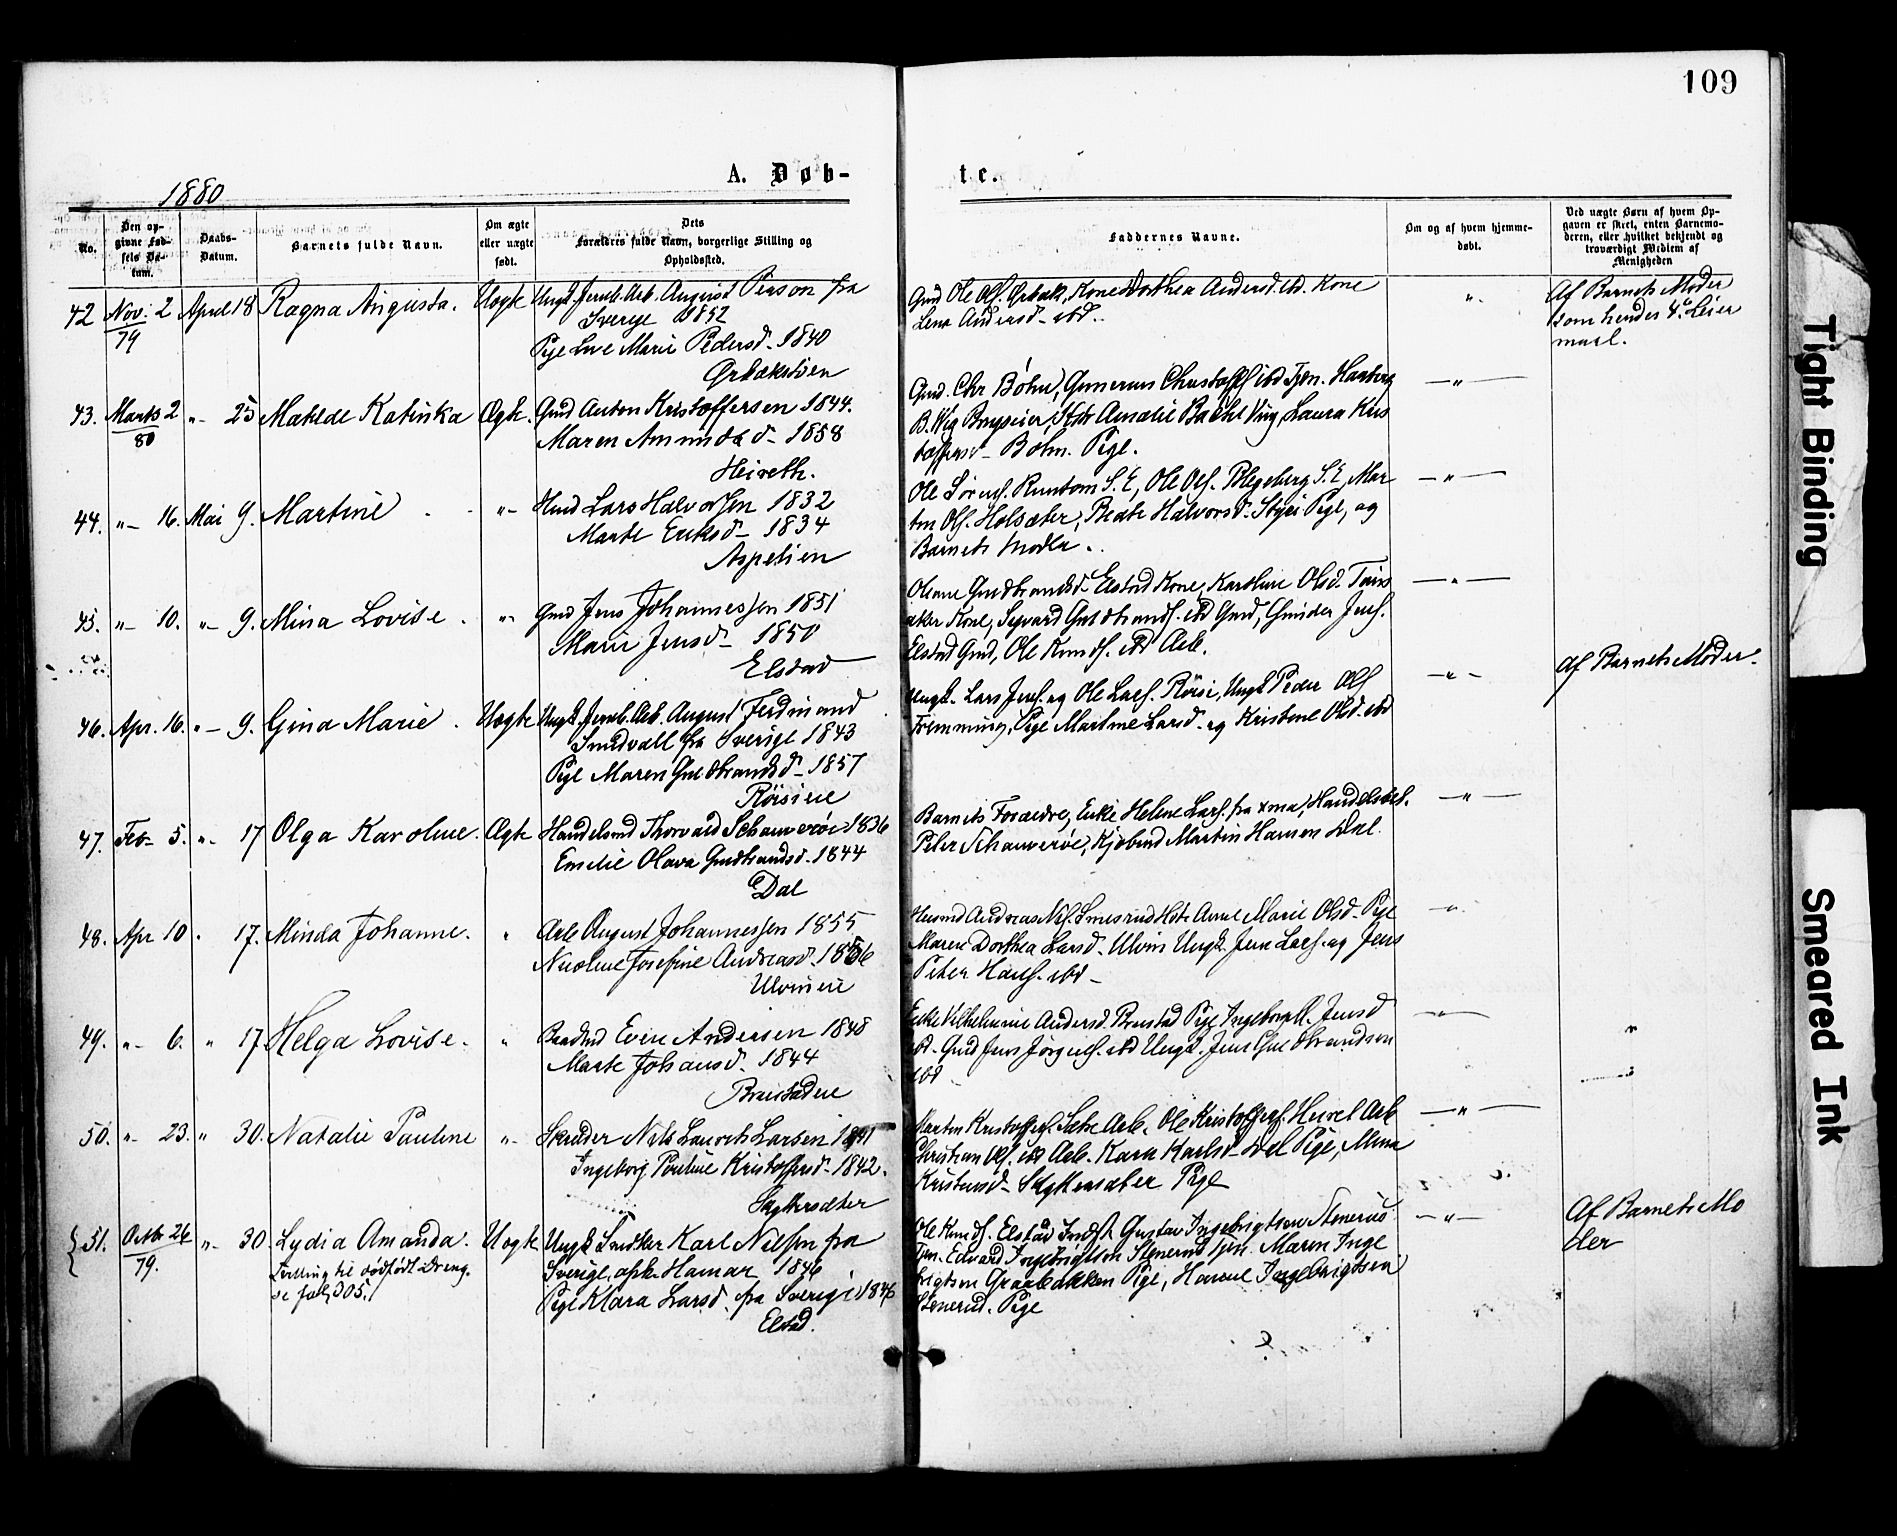 109
1880
A. Døb-
te.
No.
Den op-
givne Fød-
sels Da-
tum.
Daabs-
Datum.
Barnets fulde Navn.
Om ægte
eller uægte
født.
Dets
Forældres fulde Navn, borgerlige Stilling og
Opholdssted.
Faddernes Navne.
Om og af hvem hjemme-
døbt.
Ved uægte Børn af hvem Op-
gaven er skeet, enten Barnemo-
deren, eller hvilket bekjendt og
troværdigt Medlem af
Menigheden
42 Nov: 2 April 18 Ragna Augusta. Uægte Ungk. Jernb. Arb. August Person fra
79 Sverige 1852
Pige Marie Pedersd. 1840
Ørbækstien
Gmd Ole Ols. Ørbæk, Kone Dorthea Andersd. ibd. Kone
Lena Andersd. ibd.
"
Af Barnets Moder
som hendes 4de Leier
maal.
43. Marts 2 " 25 Matilde Katinka Ægte. Gmd Anton Kristoffersen 1844.
80 Maren Amundsd. 1858
Heireth.
Gmd. Chr Bøhn, Gunerius ibd Tjen. Harberg
B. Wig Amalie Laura Kris
toffersd. Bøhn. Pige.
— " —
44. " 16. Mai 9. Martine " Husmd Lars Halvorsen 1832
Marte Eriksd. 1834
Aspelien
Ole S. E, Ole Ols. S. E, Mar
tin Ols. Holsæter, Beate Halvorsd. Styri Pige, og
Barnets Moder.
— " —
45. " 10. " 9. Mina Lovise. " Gmd Jens Johannessen 1851
Marie Jensd. 1850
Elstad
Oliane Guldbrandsd. Elstad Kone, Karoline Olsd.
aker Kone, Syvard Guldbrands. ibd Gmd, Gunder Jens.
Elstad Gmd, Ole Knuds. ibd Arb.
— " —
46. Apr. 16. " 9. Gina Marie. Uægte Ungk. Jernb. Arb. August Ferdinand
Smedvall fra Sverige 1843
Pige Maren Guldbrandsd. 1857
Røisieie
Ungk. Lars Jens. og Ole Lars. Røisi, Ungk Peder Ols
Pige Martine Larsd. og Kristine Olsd. ibd
— " —
Af Barnets Moder.
47. Feb. 5. " 17 Olga Karoline. Ægte Handelsmd Thorvald Schauverøe 1836
Emelie Olava Guldbrandsd. 1844
Dal
Barnets Forældre, Enke Helene Lars. fra Xma, Handelsbet.
Peter Schauverøe, Kjøbmd Martin Hansen Dal.
— " —
48. Apr 10 " 17. Minda Johanne. " Arb August Johannessen 1855
Nicoline Josefine Andreasd. 1856
Ulvineie
Husmd Andreas Nils. Anne Marie Olsd. Pige
Maren Dorthea Larsd. Ulvin Ungk. Jens Lars. og Jens
Peter Hans. ibd
— "
49. " 6. " 17 Helga Lovise. " Even Andersen 1848
Marte Johansd. 1844
Enke Vilhelmine Andersd. Pige Ingeborg M. Jensd
ibd. Gmd Jens Jørgens. ibd Ungk. Jens Guldbrandsen
ibd
— " —
50. " 23. " 30. Natalie Pauline " Skrædder Nils Laurits Larsen 1841
Ingeborg Pauline Kristoffersd. 1842.
Martin Kristoffers. Sætre Arb. Ole Kristoffers. Heiret Arb
Christian Ols. ibd Arb. Kara Karlsd. Dal Pige, Mina
Kristensd. Pige
— " —
51. Octbr 26 " 30 Lydia Amanda. Uægte Ungk. Snedker Karl Nilsen fra
79. Tvilling til dødfødt Dreng. Sverige, oph. Hamar 1846
se fol. 305. Pige Klara Larsd. fra Sverige 1846
Elstad.
Ole Knuds. Elstad Gustav Ingebrigtsen Stenerud
Tjen. Edvard Ingebrigtsen Stenerud Tjen. Maren Inge
brigtsen Graabækken Pige, Hanne Ingebrigtsen
Stenerud. Pige
— " —
Af Barnets Mo
der
Tight Binding
Smeared Ink